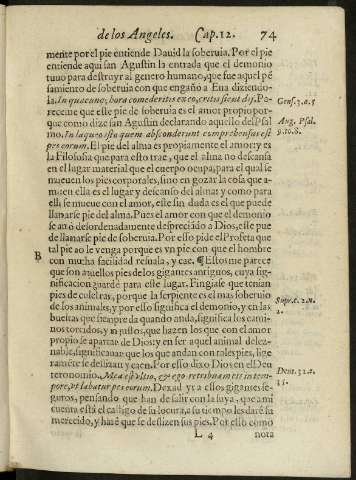 de los Angeles. Cap. 12. 74
mente por el pie entiende Dauid la soberuia. Por el pie
entiende aqui san Agustin la entrada que el demonio
tuuo para destruyr al genero humano, que fue aquel pẽ
samiento de soberuia con que engañò a Eua diziendo-
la. In quacunq; hora comederitis ex eo, eritis sicut dij. Pa-
receme que este pie de soberuia es el amor propio por-
que como dize san Agustin declarando aquello del Psal
mo. In laqueo isto quem absconderunt comprehensus est
pes eorum. El pie del alma es propiamente el amor: y es
la Filosofia que para esto trae, que el alma no descansa
en el lugar material que el cuerpo ocupa, para el qual se
mueuen los pies corporales, sino en gozar la cosa que a-
ma: en ella es el lugar y descanso del alma: y como para
ella se mueue con el amor, este sin duda es el que puede
llamarse pie del alma. Pues el amor con que el demonio
se amò desordenadamente despreciãdo a Dios, este pue
de llamarse pie de soberuia. Por esso pide el Profeta que
tal pie no le venga porque es vn pie con que el hombre
con mucha facilidad resuala, y cae. ¶ Estos me parece
que son aquellos pies de los gigantes antiguos, cuya sig-
nificacion guardè para este lugar. Fingiase que tenian
pies de culebras, porque la serpiente es el mas soberuio
de los animales, y por esso significa el demonio, y en las
bueltas que siempre da quando anda, significa los cami-
nos torcidos, y injustos, que hazen los que con el amor
propio se apartan de Dios: y en ser aquel animal delez-
nable, significauan que los que andan con tales pies, lige
ramẽte se deslizan y caen. Por esso dixo Dios en el Deu
teronomio. Mea est vltio, & ego retribuam eis in tem-
pore, vt labatur pes eorum. Dexad yr a essos gigantes se-
guros, pensando que han de salir con la suya, que a mi
cuenta està el castigo de su locura, a su tiempo les darè su
merecido, y harè que se deslizen sus pies. Por esso como
L 4 nota
Gens. 3. a. 5
Aug. Psal.
9. to. 8.
B
Supr. c. 2. n.
2.
Deut. 32. e.
35.